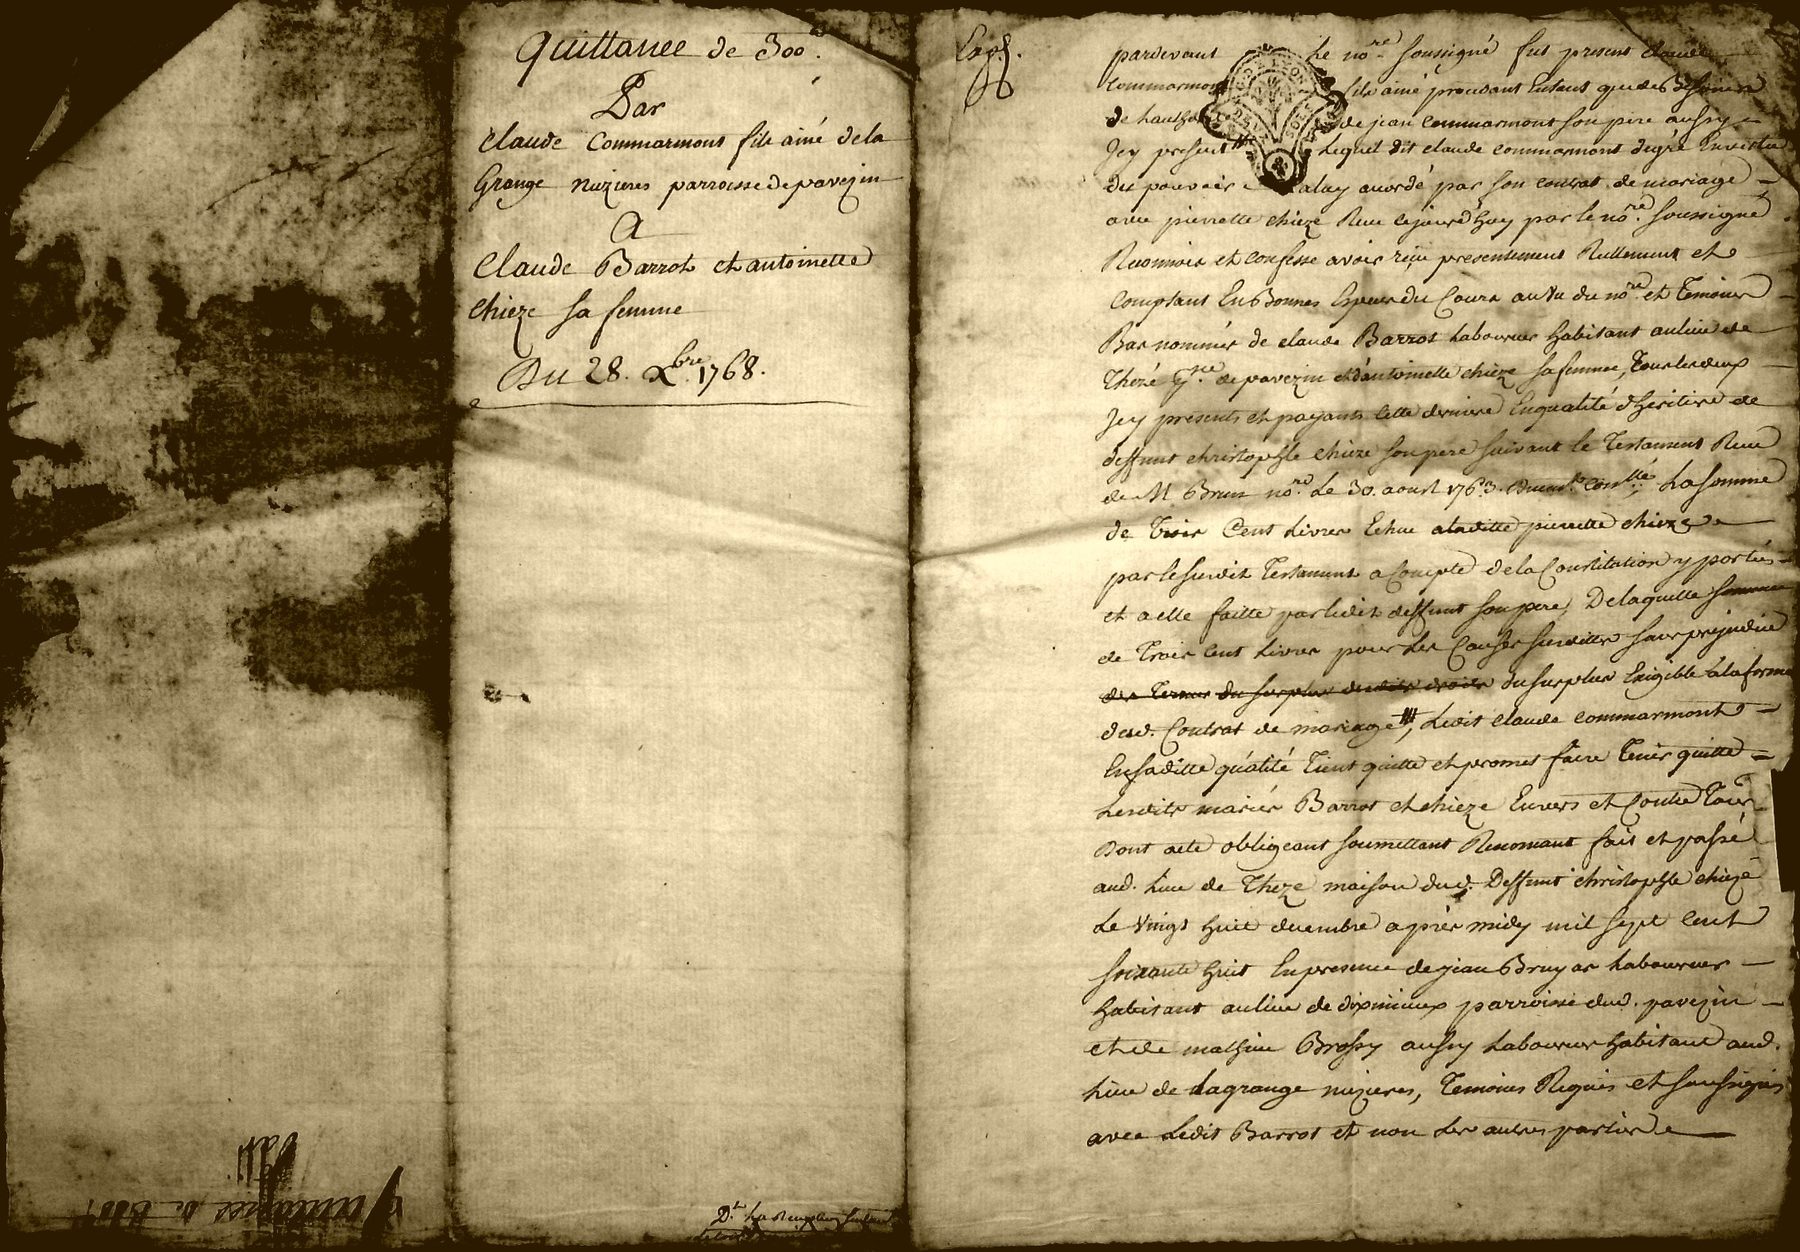 Quittance de 300ᵗᵗ.
Par
Claude Commarmont fils ainé de la
Grange nuzieres parroisse de pavezin
A
Claude Barrot et antoinette
chieze sa femme
Du 28. Xbre. 1768.
Exp.
pardevant Le nore. soussigné fut present claude
Commarmont fils ainé procedant
de jean commarmont son pere aussy
Icy present Lequel dit claude commarmont degré
du pouvoir a luy acordé par son contrat de mariage
avec pierrette chieze Receu cejourd'huy par le nore. soussigné
Reconnoit et confesse avoir reçu presentement Reellement et
Comptant En Bonnes Especes du Cours au Vu du nore. et Temoins
Bas nommés de claude Barrot Laboureur habitant au lieu de
Thezé psse. de pavezin et d'antoinette chieze sa femme, Tous les deux
Icy présents et payants Cette derniere En qualité d'heritiere de
deffunt christophle chieze son pere suivant le Testament Receu
de M Brun nore. Le 30. aoust 1763. La somme
de Trois Cent Livres Echue a laditte pierrette chieze
par le susdit Testament a Compte de la Constitution y portée
et a elle faitte par ledit deffunt son pere, De laquelle somme
de Trois Cent Livres pour Les Causes susdittes sans prejudice
des Termes du surplus desdits droits du surplus Exigible a la forme
dud. Contrat de mariage, Ledit claude commarmont
En saditte qualité Tient quitte et promet faire Tenir quitte
Lesdits mariés Barrot et chieze Envers et Contre Tous
Dont acte obligeant soumettant Renonçant fait et passé
aud. Lieu de Thezé maison dud. Deffunt christophle chieze
Le Vingt huit decembre après midy mil sept cent
soixante huit En presence de jean Bruyas Laboureur
habitant au lieu de diximieux parroisse dud. pavezin
et de mathieu Brossy aussy Laboureur habitant aud.
Lieu de Lagrange nuzieres, Temoins Requis et soussignés
avec Ledit Barrot et non Les autres parties